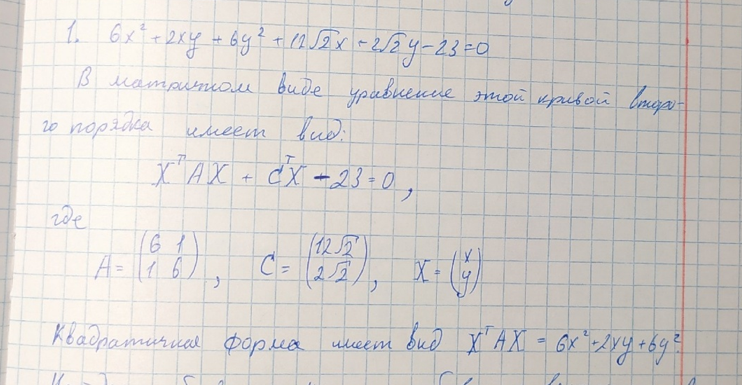 1. 6x² + 2xy + 6y² + 12√2x + 2√2y - 23 = 0
В матричном виде уравнение этой кривой второ-
го порядка имеет вид:
XᵀAX + CᵀX - 23 = 0,
где
A = (6 1
1 6), C = (12√2
2√2), X = (x
y)
Квадратичная форма имеет вид XᵀAX = 6x² + 2xy + 6y².